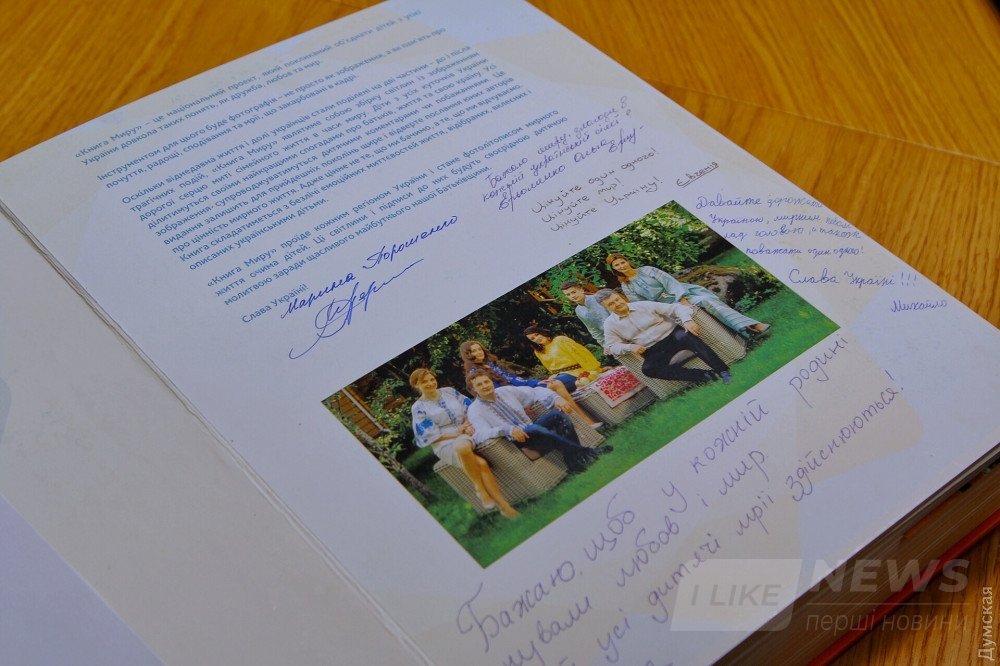 «Книга Миру» – це національний проект, який покликаний об'єднати дітей з усієї
України довкола таких понять, як дружба, любов та мир.
Інструментом для цього буде фотографія – не просто як зображення, а як пам'ять про
почуття, радощі, сподівання та мрії, що закарбовані в кадрі.
Оскільки віднедавна життя і долі українців стали поділені на дві частини – до і після
трагічних подій, «Книга Миру» являтиме собою збірку світлин із зображенням
дорогої серцю миті сімейного життя в часи миру. Діти з усіх куточків України
ділитимуться своїми найкращими спогадами про батьків та мир у свою країну. Усі
зображення супроводжуватимуться дитячими коментарями чи побажаннями. Це
видання залишить для прийдешніх поколінь щире і відверте послання юних авторів
про цінність мирного життя. Адже цінне не те, що ми бачимо, а те, що ми відчуваємо.
Книга складатиметься з безлічі емоційних миттєвостей життя, відібраних, вклеєних і
описаних українськими дітьми.
«Книга Миру» пройде кожним регіоном України і стане фотолітописом мирного
життя очима дітей. Ці світлини і підписи до них будуть своєрідною дитячою
молитвою заради щасливого майбутнього нашої Батьківщини.
Слава Україні!
Марина Порошенко
Бажаю миру, злагоди в
кожній українській сім'ї
Порошенко
Цінуйте один одного!
Цінуйте мир!
Цінуйте Україну!
Євгенія
Давайте дорожити
Україною, мирним небом
над головою, а також
поважати один одного!
Слава Україні!!!
Михайло
Бажаю, щоб у кожній родині
панували любов і мир
й усі дитячі мрії здійснюються!
I LIKE NEWS
перші новини
Думская